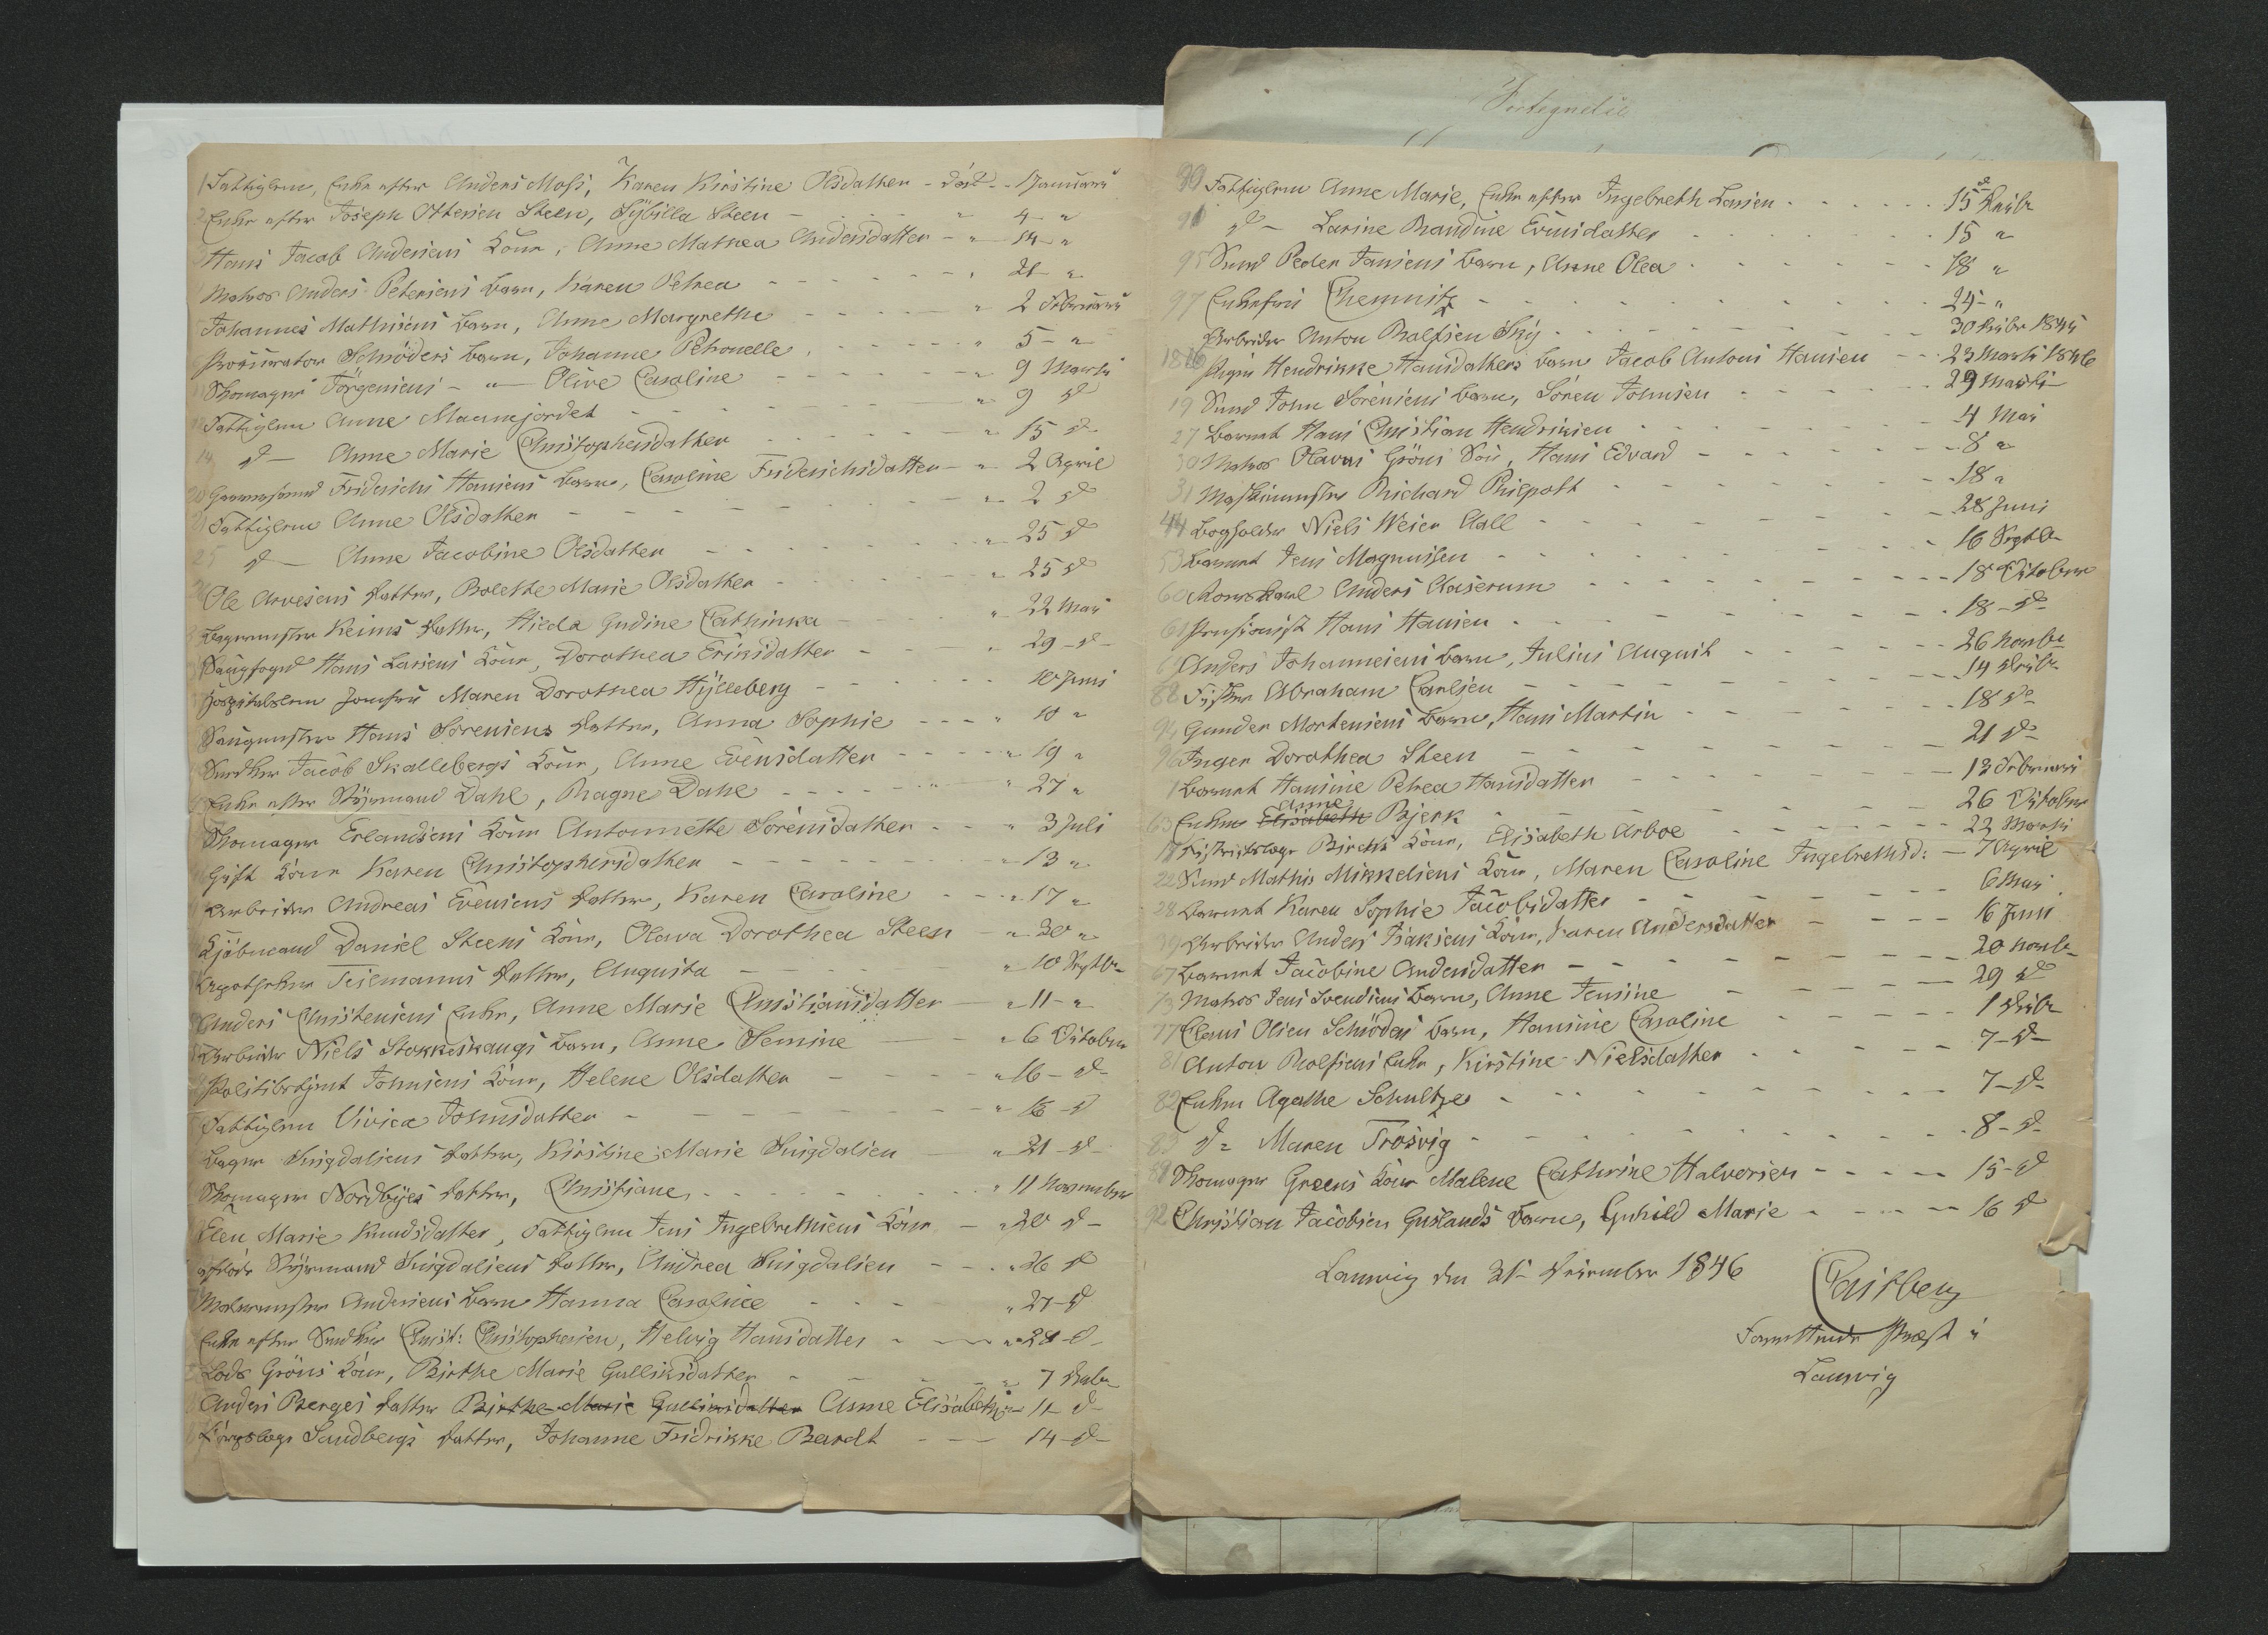 Fortegnelse
1 Fattiglem, Enke efter Anders Moss, Karen Kirstine Olsdatter - död - 1 Januari
2 Enke efter Joseph Ottersen Steen, Sybilla Steen - " 4 - "
Hans Jacob Andersens Kone, Anne Mathea Andersdatter - " 14 - "
Matros Anders Petersens Barn, Karen Petrea - " 21 - "
Johannes Mathisens Barn, Anne Margrethe - " 2 Februari
Procurator Schröders Barn, Johanne Petronelle - " 5 - "
Skomager Jörgensens - " - Olive Caroline - " 9 Marts
Fattiglem Anne Maanejordet - " 9 d
14 d - Anne Marie Christophersdatter - " 15 d -
20 Friderichs Hansens Barn, Caroline Friderichsdatter - " 2 April
21 Fattiglem Anne Olsdatter - " 2 d
25 d - Anne Jacobine Olsdatter - " 25 d
Ole Arvesens Datter, Bolethe Marie Olsdatter - " 25 d
Bagermester Keims Datter, Hilda Gudine Cathinka - " 22 Mai
Hans Larsens Kone, Dorothea Eriksdatter - " 29 - d -
Hospitalslem Jomfru Maren Dorothea Hylleberg - 10 Juni
Hans Sörensens Datter, Anna Sophie - " 10 "
Snedker Jacob Skallebergs Kone, Anne Evensdatter - " 19 "
Enke efter Styrmand Dahl, Ragne Dahl - " 27 "
Skomager Erlandsens Kone Antonnette Sörensdatter - " 3 Juli
Gift Kone Karen Christophersdatter - 13 "
Arbeider Andreas Evensens Datter, Karen Caroline - " 17 "
Kjöbmand Daniel Steens Kone, Olava Dorothea Steen - " 30 "
Apotheker Teilmanns Datter, Augusta - " 10 Septbr
Anders Christensens Enke, Anne Marie Christiansdatter - " 11 - "
Arbeider Niels Stokkeskaugs Barn, Anne Semine - " 6 October
Politibetjent Johnsens Kone, Helene Olsdatter - " 16 - d -
Fattiglem Vivica Johnsdatter - " 18 - d
Bager Smigdaliens Datter, Kirstine Marie Smigdalien - " 21 - d -
Skomager Nordbyes Datter, Christiane - " 11 November
Elen Marie Knudsdatter, Fattiglem Jens Ingebrethsens Kone - " 20 d -
Styrmand Smigdaliens Datter, Andrea Smigdalien - " 26 d
Malermester Andersens Barn Hanna Caroline - " 27 - d
Enke efter Snedker Christ: Christophersen, Helvig Hansdatter - " 28 - d -
Lods Gröns Kone, Birthe Marie Gulliksdatter - " 7 Decbr
Anders Berges Datter Birthe Marie Gulliksdatter Anne Elisabeth - 11 d -
Sandbergs Datter, Johanne Fridrikke Bardt - 14 - d -
90 Fattiglem Anne Marie, Enke efter Ingebreth Larsen - 15 Decbr
91 d - Larine Randine Evensdatter - 15 "
95 Peder Jansens Barn, Anne Olea - 18 "
97 Enkefru Chemnitz - 24 - "
Arbeider Anton Rolfsen Sky - 30 Decbr 1845
1846 Pigen Hendrikke Hansdatters Barn Jacob Antoni Hansen - 23 Marts 1846
19 John Sörensens Barn, Sören Johnsen - 29 Marts
27 Barnet Hans Christian Hendriksen - 4 Mai
30 Matros Olavus Gröns Sön, Hans Edvard - 8 "
31 Maskinmester Richard Philpott - 18 "
44 Bogholder Niels Weier Aall - 28 Juni
53 Barnet Jens Magnussen - 16 Septbr
60 Anders Claserum - 18 October
61 Pensionist Hans Hansen - 18 - d -
Anders Johannesens Barn, Julius August - 26 Novbr
88 Fisker Abraham Carlsen - 14 Decbr
94 Gunder Mortensens Barn, Hans Martin - 18 d -
96 Inger Dorothea Steen - 21 d -
1 Barnet Hansine Petrea Hansdatter - 13 Februari
63 Enken Elisabeth Anne Bjerk - 26 October
17 Districtslæge Bircks Kone, Elisabeth Arboe - 22 Marts
22 Mathis Mikkelsens Kone, Maren Caroline Ingebrethsd: - 7 April
28 Barnet Karen Sophie Jacobsdatter - 6 Mai
39 Arbeider Anders Isaksens Kone, Karen Andersdatter - 16 Juni
67 Barnet Jacobine Andersdatter - 20 Novbr
73 Matros Jens Svendsens Barn, Anne Jensine - 29 d
77 Claus Olsen Schröders Barn, Hansine Caroline - 1 Decbr
81 Anton Rolfsens Enke, Kirstine Nielsdatter - 7 - d -
82 Enken Agathe Schultze - 7 - d -
83 d - Maren Trosvig - 8 - d -
89 Skomager Greens Kone Malene Cathrine Halvorsen - 15 - d
92 Christian Jacobsen Guslands Barn, Gunhild Marie - 16 d
Laurvig den 31 December 1846
Castberg
Præst i
Laurvig